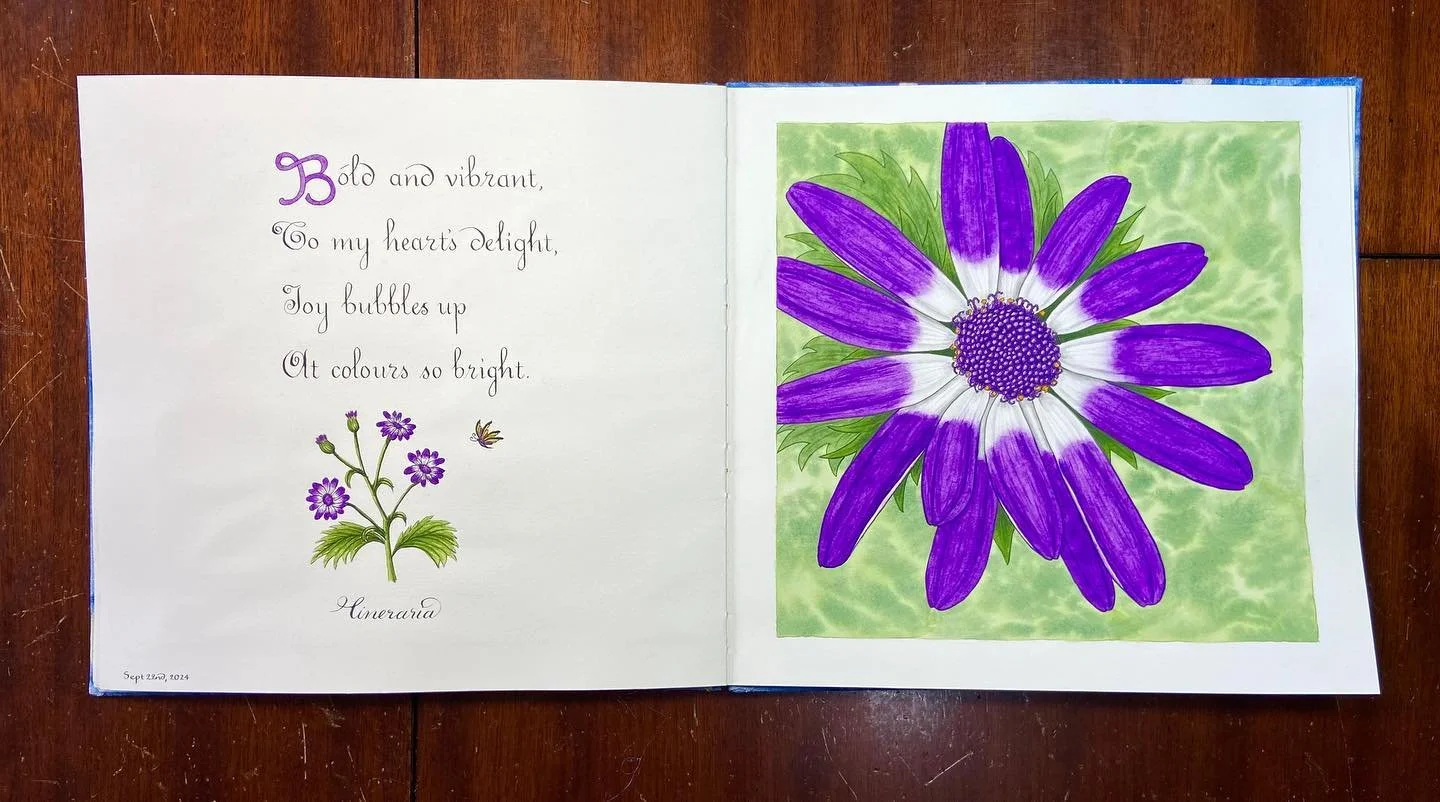 Bold and vibrant,
To my heart's delight,
Joy bubbles up
At colours so bright.
Cineraria
Sept 22nd, 2024